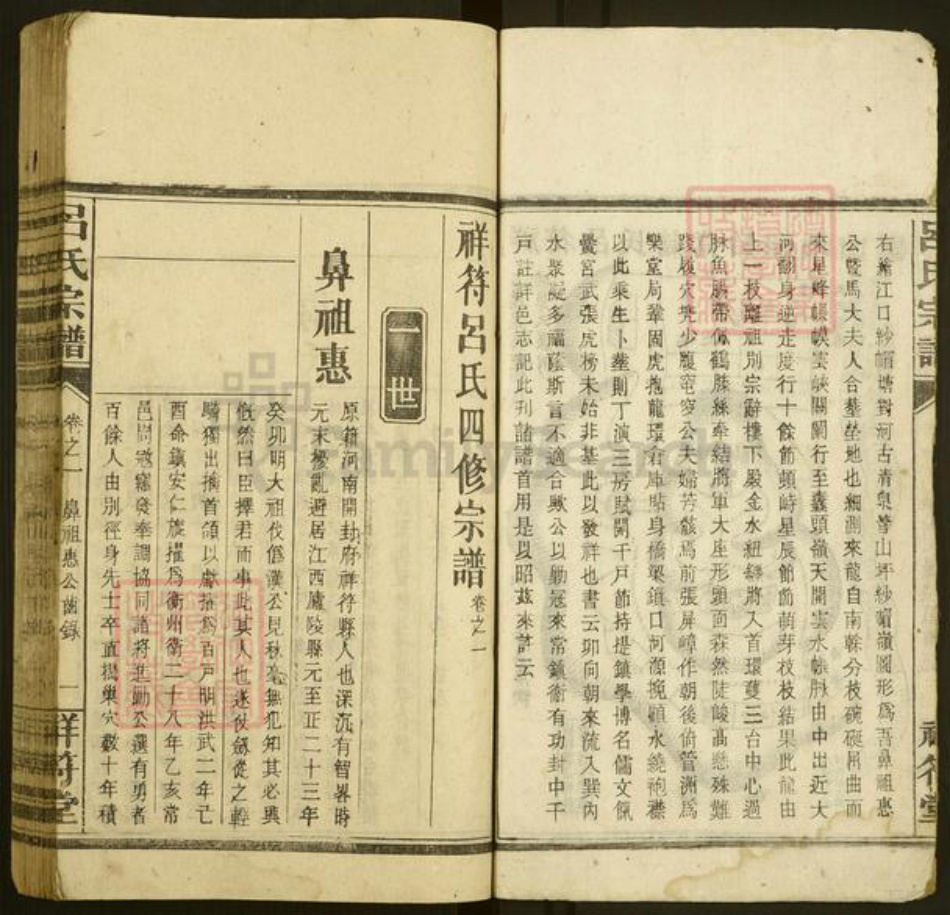 呂氏宗譜
祥符堂
右繪江口紗帽塘對河古清泉等山坪紗帽嶺圖形爲吾鼻祖惠
公曁馬大夫人合墓塋地也細測來龍自南幹分枝碗礙屈曲而
來星峰帳模雲峽關闌行至蠡頭嶺天開雲水帳脉由中出近大
河翻身逆走度行十餘節頓峙星辰節節萌芽枝枝結果此龍由
上一枝離祖別宗辭樓下殿金水紐絲將入首環護三台中心過
脉魚膓帶佩鶴膝絲牽結將軍大座形頭面森然陡峻高懸殊難
踐履穴凭少覆窀穸公夫婦芳骸焉前張屏嶂作朝後倚管洲爲
樂堂局鞏固虎抱龍環倉庫貼身橋梁鎖口河源挽顧水繞袍襟
以此乘生卜塟則丁演三房賦開千戸節持提鎮學博名儒文佩
黌宮武張虎榜未始非基此以發祥也書云卯向朝來流入巽内
水聚凝多福蔭斯言不適合歟公以勳冠來常鎮衞有功封中千
戸註詳邑志記此刊諸譜首用是以昭茲來許云
祥符呂氏四修宗譜 卷之一
一世
鼻祖惠
原籍河南開封府祥符縣人也深沉有智畧時
元末擾亂避居江西廬陵縣元至正二十三年
癸卯明大祖伐僞漢公見秋毫無犯知其必興
慨然曰臣擇君而事此其人也遂仗劔從之輕
騎獨出擒首領以獻授爲百戸明洪武二年己
酉命鎮安仁旋擢爲衡州衞二十八年乙亥常
邑峒寇竊發奉調協同諸將進勦公選有勇者
百餘人由別徑身先士卒直搗巢穴數十年積
呂氏宗譜
卷之一 鼻祖惠公齒錄 一
祥符堂